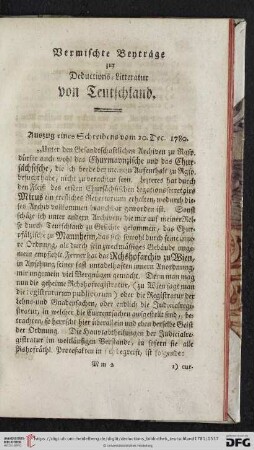 Vermischte Beyträge
zur
Deductions-Litteratur
von Teutschland.
Auszug eines Schreibens vom 20. Dec. 1780.
„Unter den Gesandtschaftlichen Archiven zu Rgsp.
dürfte auch wohl das Churmaynzische und das Chur-
sächsische, da ich beyde bey meinem Aufenthalt zu Rgsp.
besucht habe, nicht zu verachten seyn. letzteres hat durch
den Fleiß des ersten Chursächsischen legationssecretairs
Mirus ein treffliches Repertorium erhalten, wodurch die-
ses Archiv vollkommen brauchbar geworden ist. Sonst
habe ich unter andern Archiven die mir auf meiner Reise
durch Teutschland zu Gesicht gekommen, das Chur-
pfälzische zu Mannheim, das sich sowohl durch seine inne-
re Ordnung, als durch sein zweckmäßiges Gebäude unge-
mein empfiehlt. Ferner hat das Rchshofarchiv zu Wien,
in Ansehung seiner fast untadelhaften innern Anordnung,
mir ungemein viel Vergnügen gemacht. Denn man mag
nun die geheime Rchshofregistratur, (zu Wien sagt man
die registraturam publicorum) oder die Registratur der
lehns und Gnadensachen, oder endlich die Judicialregi-
stratur, in welcher die Currentsachen ausgestellt sind, be-
trachten, so herrscht hier überall ein und eben derselbe Geist
der Ordnung. Die Hauptabtheilungen der Judicialre-
gistratur im weitläuftigen Verstande, in sofern sie alle
Rchshofräthl. Protocollen in sich begreift, ist folgende:
M m 2
1) cur-
UNIVERSITÄTS-
BIBLIOTHEK
HEIDELBERG
Gefördert durch die
DFG